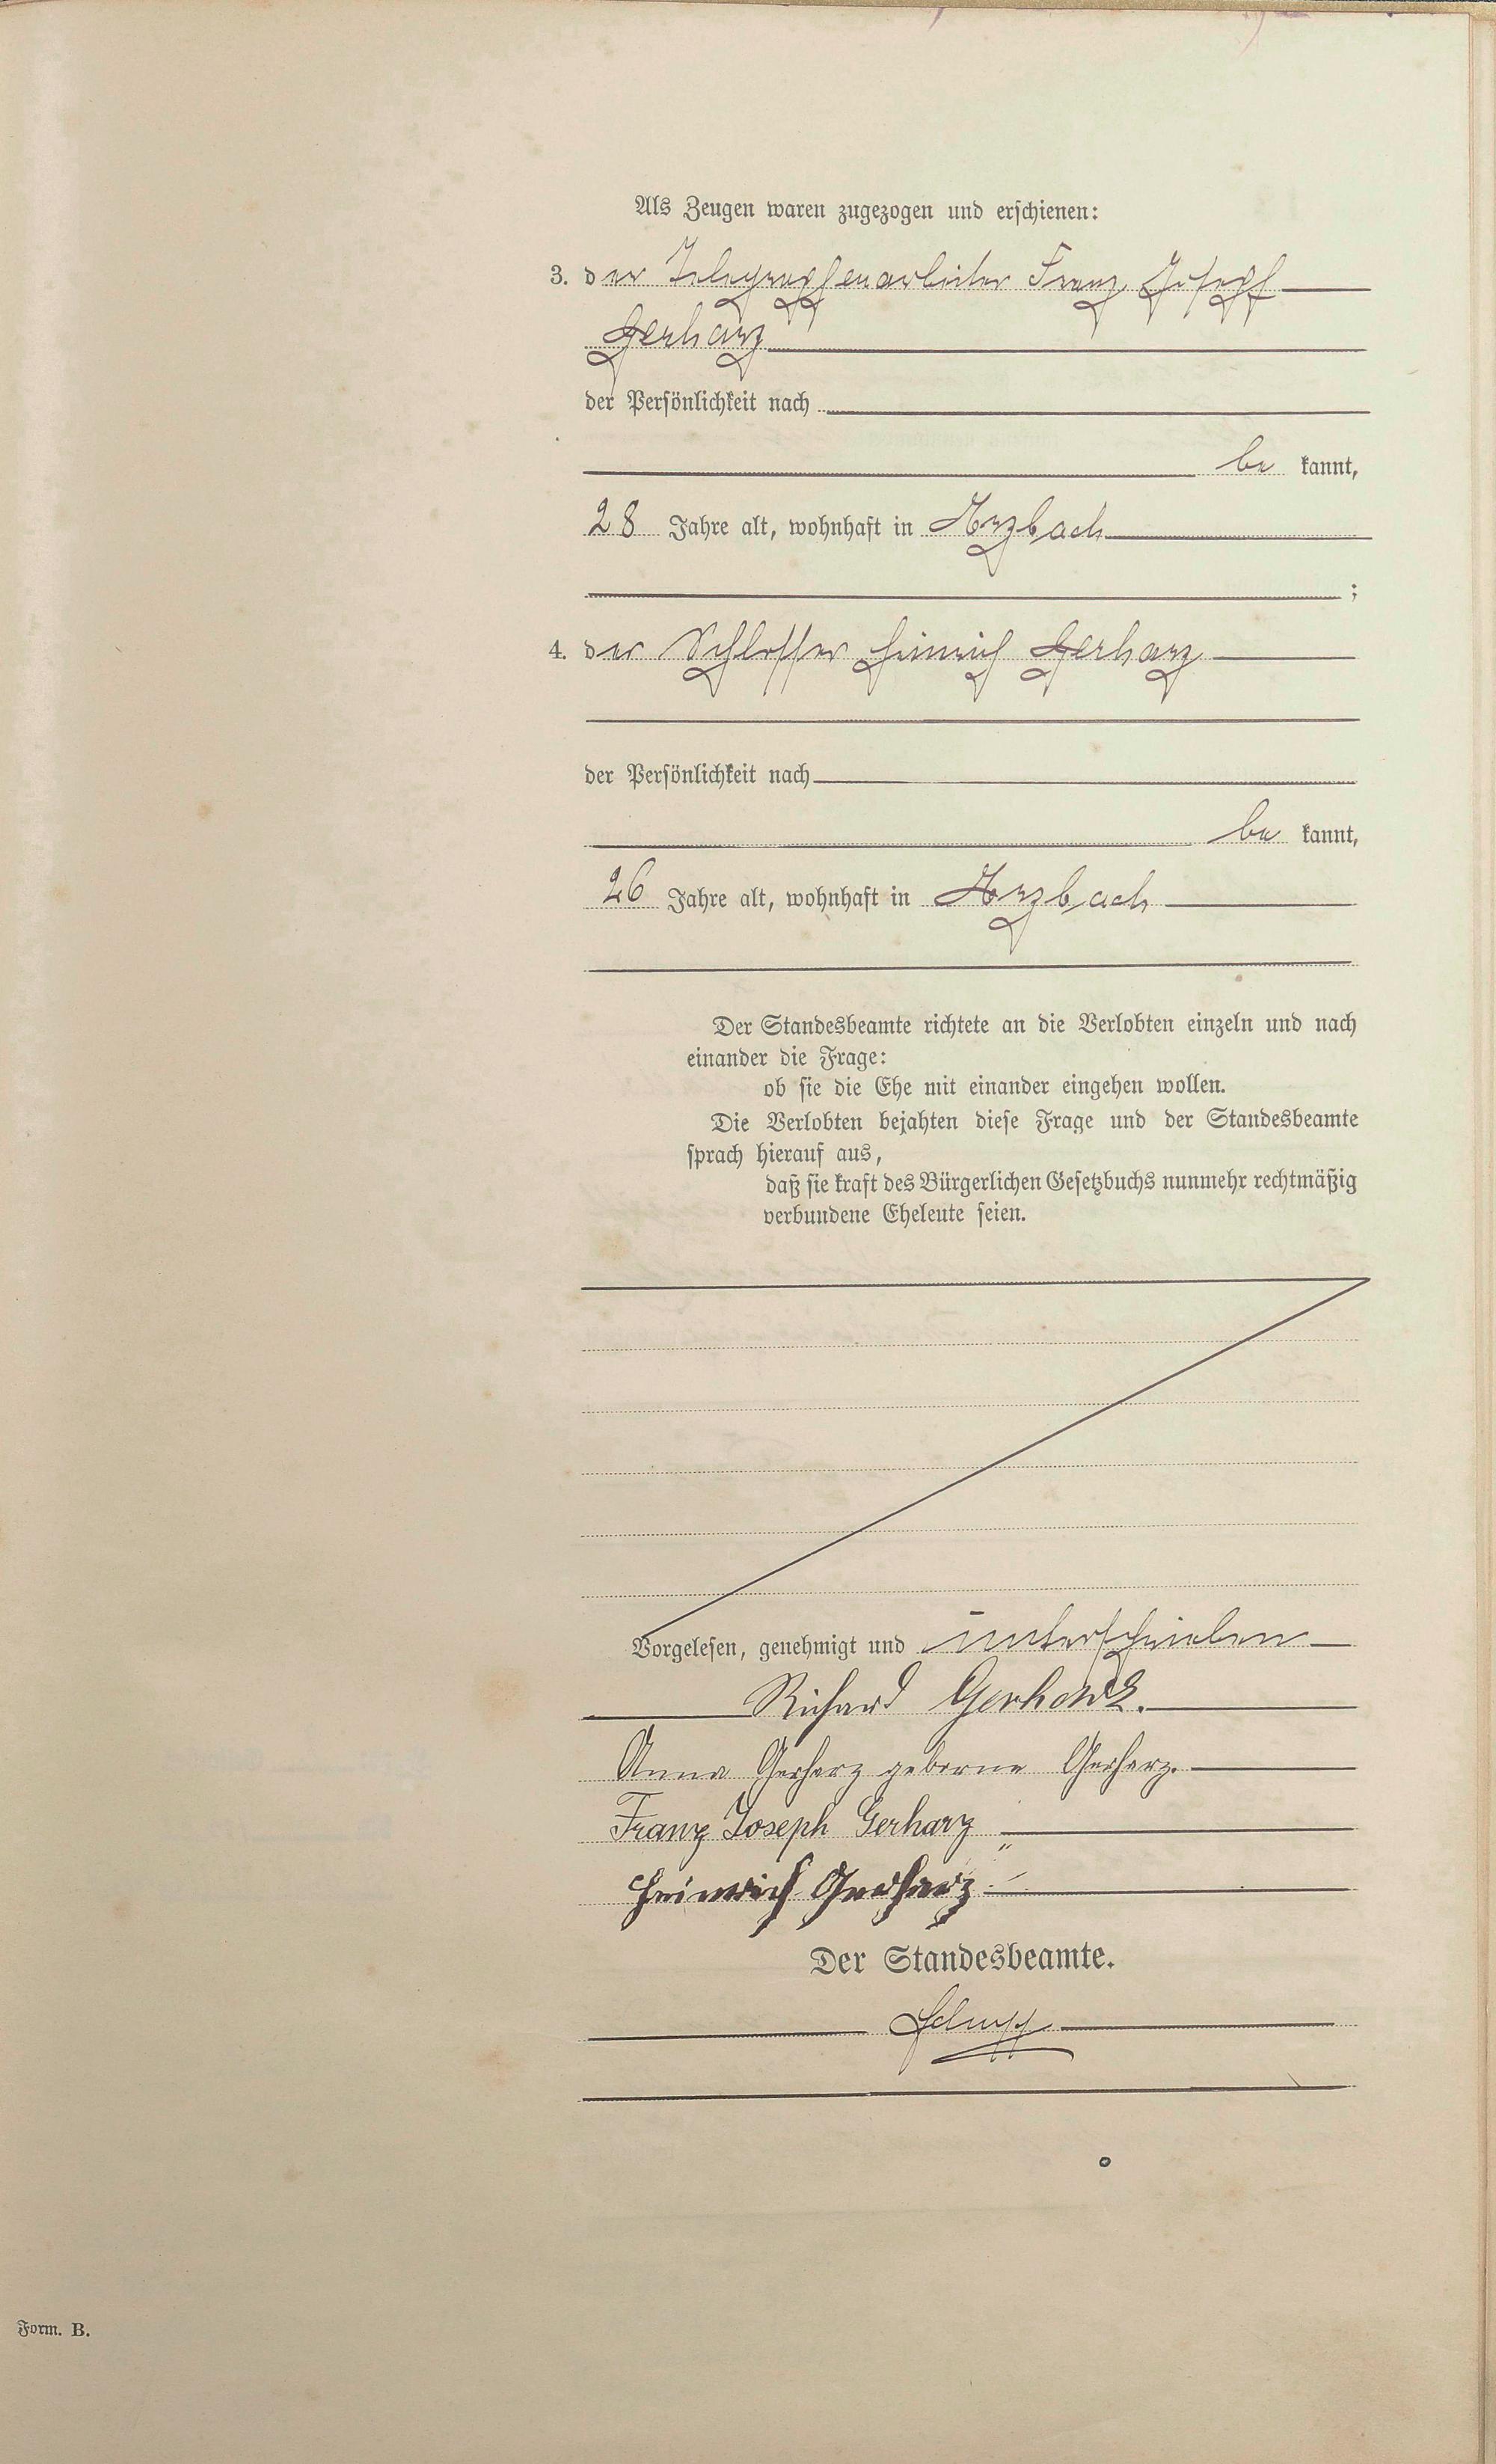 Als Zeugen waren zugezogen und erschienen:
3. der Telegraphenarbeiter Franz Joseph
Gerharz
der Persönlichkeit nach
be kannt,
28 Jahre alt, wohnhaft in Arzbach
;
4. der Schlosser Heinrich Gerharz
der Persönlichkeit nach
be kannt,
26 Jahre alt, wohnhaft in Arzbach
Der Standesbeamte richtete an die Verlobten einzeln und nach
einander die Frage:
ob sie die Ehe mit einander eingehen wollen.
Die Verlobten bejahten diese Frage und der Standesbeamte
sprach hierauf aus,
daß sie kraft des Bürgerlichen Gesetzbuchs nunmehr rechtmäßig
verbundene Eheleute seien.
Vorgelesen, genehmigt und unterschrieben
Richard Gerharz.
Anna Gerharz geborne Gerharz.
Franz Joseph Gerharz
Heinrich Gerharz
Der Standesbeamte.
Form. B.